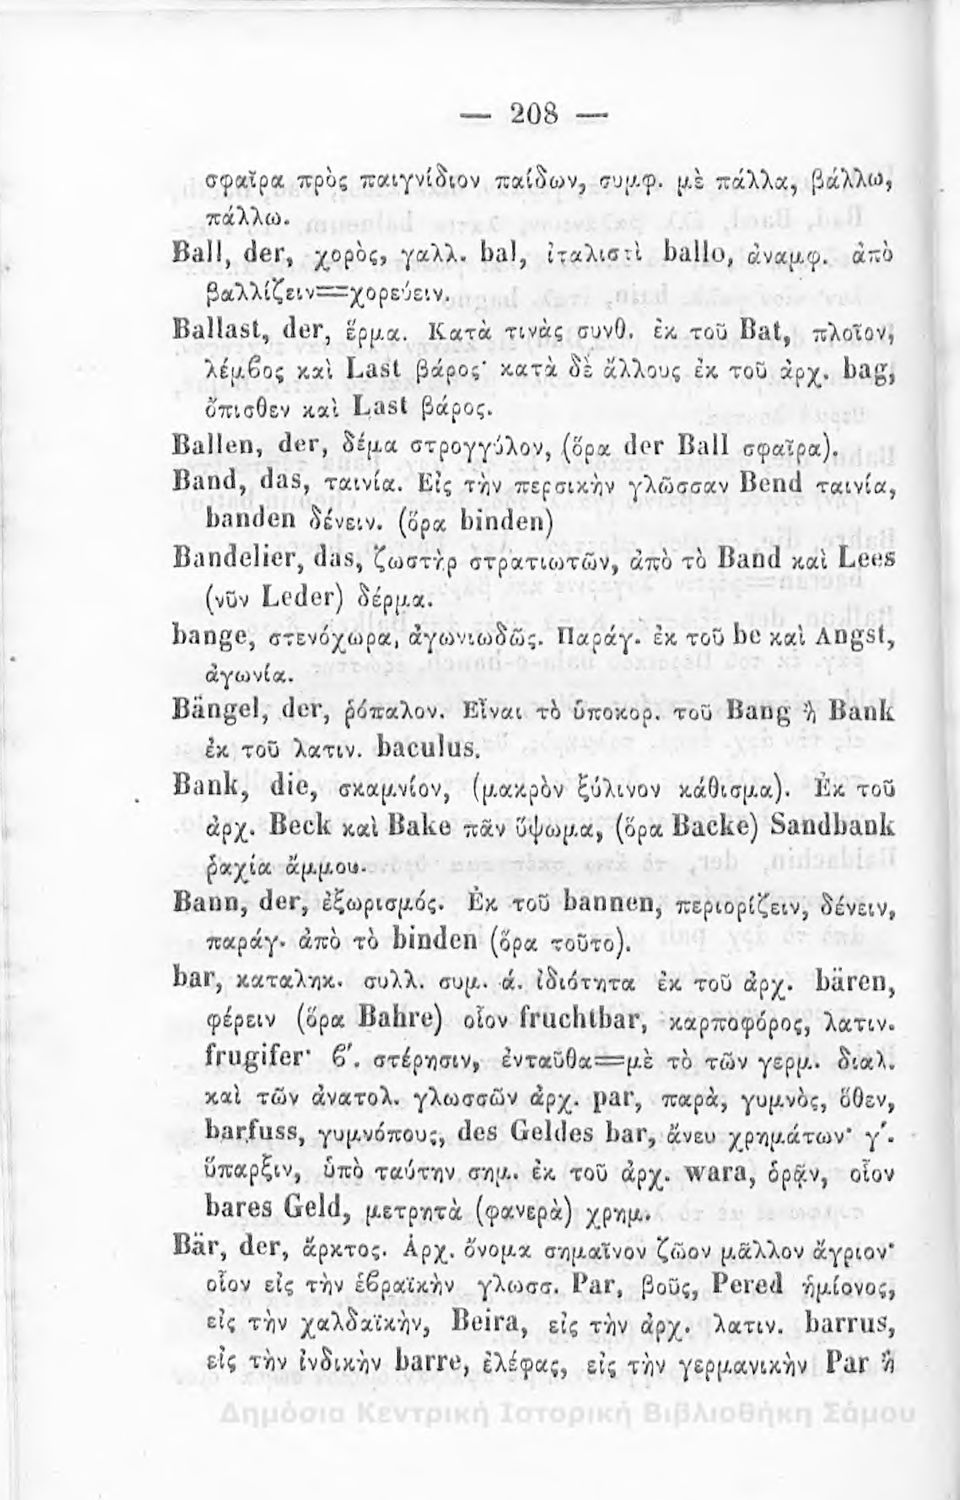 — 208 —
σφαῖρα πρὸς παιγνίδιον παίδων, συμφ. μὲ πάλλα, βάλλω,
πάλλω.
Ball, der, χορὸς, γαλλ. bal, ἰταλιστὶ ballo, ἀναμφ. ἀπὸ
βαλλίζειν=χορεύειν.
Ballast, der, ἕρμα. Κατὰ τινὰς συνθ. ἐκ τοῦ Bat, πλοῖον,
λέμβος καὶ Last βάρος· κατὰ δὲ ἄλλους ἐκ τοῦ ἀρχ. bag,
ὄπισθεν καὶ Last βάρος.
Ballen, der, δέμα στρογγύλον, (ὅρα der Ball σφαῖρα).
Band, das, ταινία. Εἰς τὴν περσικὴν γλῶσσαν Bend ταινία,
banden δένειν. (ὅρα binden)
Bandelier, das, ζωστὴρ στρατιωτῶν, ἀπὸ τὸ Band καὶ Lees
(νῦν Leder) δέρμα.
bange, στενόχωρα, ἀγωνιωδῶς. Παράγ. ἐκ τοῦ be καὶ Angst,
ἀγωνία.
Bängel, der, ῥόπαλον. Εἶναι τὸ ὑποκορ. τοῦ Bang ἢ Bank
ἐκ τοῦ λατιν. baculus.
Bank, die, σκαμνίον, (μακρὸν ξύλινον κάθισμα). Ἐκ τοῦ
ἀρχ. Beck καὶ Bake πᾶν ὕψωμα, (ὅρα Backe) Sandbank
ῥαχία ἄμμου.
Bann, der, ἐξωρισμός. Ἐκ τοῦ bannen, περιορίζειν, δένειν,
παράγ. ἀπὸ τὸ binden (ὅρα τοῦτο).
bar, καταληκ. συλλ. συμ. ά. ἰδιότητα ἐκ τοῦ ἀρχ. bären,
φέρειν (ὅρα Bahre) οἷον fruchtbar, καρποφόρος, λατιν.
frugifer· β'. στέρησιν, ἐνταῦθα=μὲ τὸ τῶν γερμ. διαλ.
καὶ τῶν ἀνατολ. γλωσσῶν ἀρχ. par, παρὰ, γυμνὸς, ὅθεν,
barfuss, γυμνόπους, des Geldes bar, ἄνευ χρημάτων· γ'.
ὕπαρξιν, ὑπὸ ταύτην σημ. ἐκ τοῦ ἀρχ. wara, ὁρᾷν, οἷον
bares Geld, μετρητὰ (φανερὰ) χρημ.
Bär, der, ἄρκτος. Ἀρχ. ὄνομα σημαῖνον ζῶον μᾶλλον ἄγριον·
οἷον εἰς τὴν ἑβραϊκὴν γλωσσ. Par, βοῦς, Pered ἡμίονος,
εἰς τὴν χαλδαϊκὴν, Beira, εἰς τὴν ἀρχ. λατιν. barrus,
εἰς τὴν ἰνδικὴν barre, ἐλέφας, εἰς τὴν γερμανικὴν Par ἢ
Δημόσια Κεντρική Ιστορική Βιβλιοθήκη Σάμου